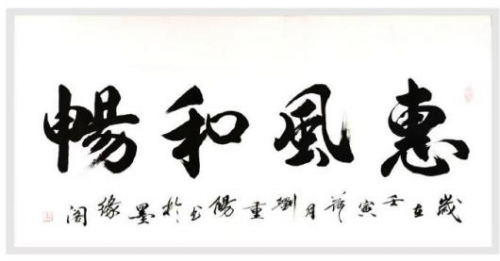 惠風和暢
歲在壬寅月劉重陽书於墨緣閣